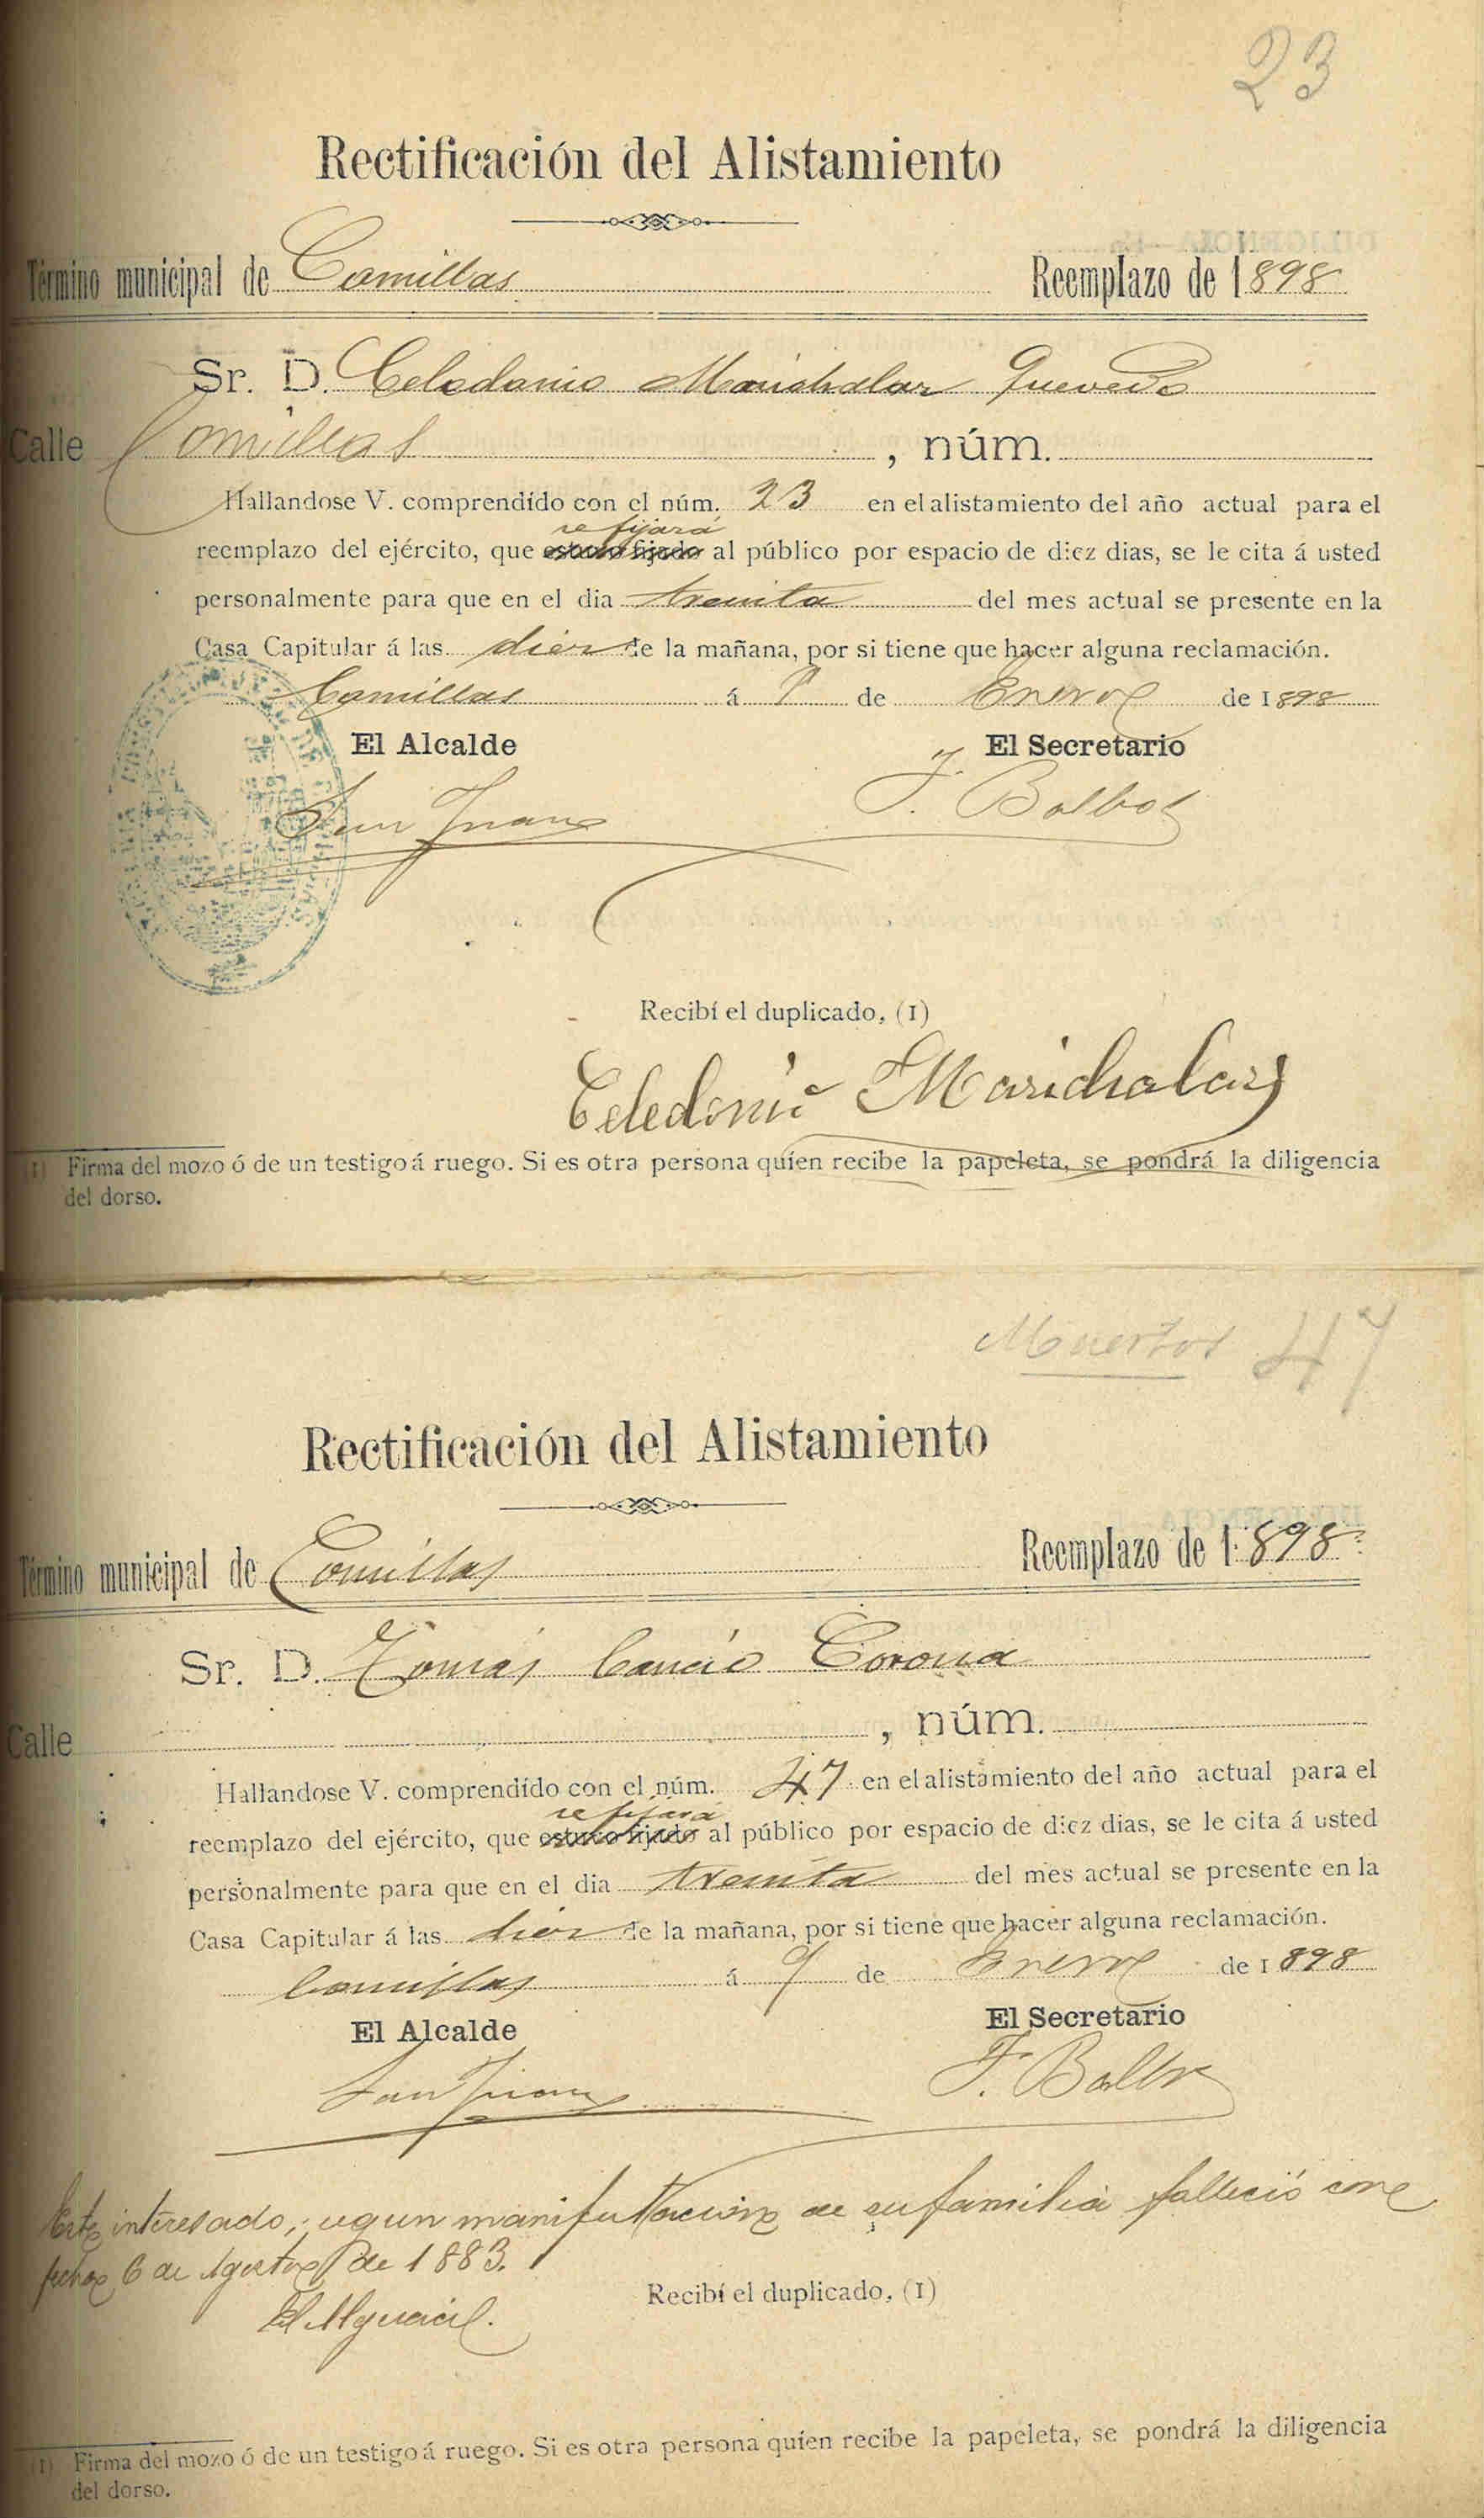 23
Rectificación del Alistamiento
Término municipal de Comillas Reemplazo de 1898
Sr. D. Celedonio Marichalar Quevedo
Calle Comillas, núm.
Hallandose V. comprendído con el núm. 23 en el alistamiento del año actual para el
se fijará
reemplazo del ejército, que estará fijado al público por espacio de diez dias, se le cita á usted
personalmente para que en el dia treinta del mes actual se presente en la
Casa Capitular á las diez de la mañana, por si tiene que hacer alguna reclamación.
Comillas á 9 de Enero de 1898
El Alcalde El Secretario
San Juan F. Balbos
Recibí el duplicado, (1)
Celedonio Marichalar
(1) Firma del mozo ó de un testigo á ruego. Si es otra persona quíen recibe la papeleta, se pondrá la diligencia
del dorso.
Muertos 47
Rectificación del Alistamiento
Término municipal de Comillas Reemplazo de 1898
Sr. D. Tomás Cancio Corona
Calle , núm.
Hallandose V. comprendído con el núm. 47 en el alistamiento del año actual para el
se fijará
reemplazo del ejército, que estará fijado al público por espacio de diez dias, se le cita á usted
personalmente para que en el dia treinta del mes actual se presente en la
Casa Capitular á las diez de la mañana, por si tiene que hacer alguna reclamación.
Comillas á 9 de Enero de 1898
El Alcalde El Secretario
San Juan F. Balb
Este interesado, segun manifestacion de su familia falleció con
fecha 6 de Agosto de 1883.
El Alguacil.
Recibí el duplicado, (1)
(1) Firma del mozo ó de un testigo á ruego. Si es otra persona quíen recibe la papeleta, se pondrá la diligencia
del dorso.